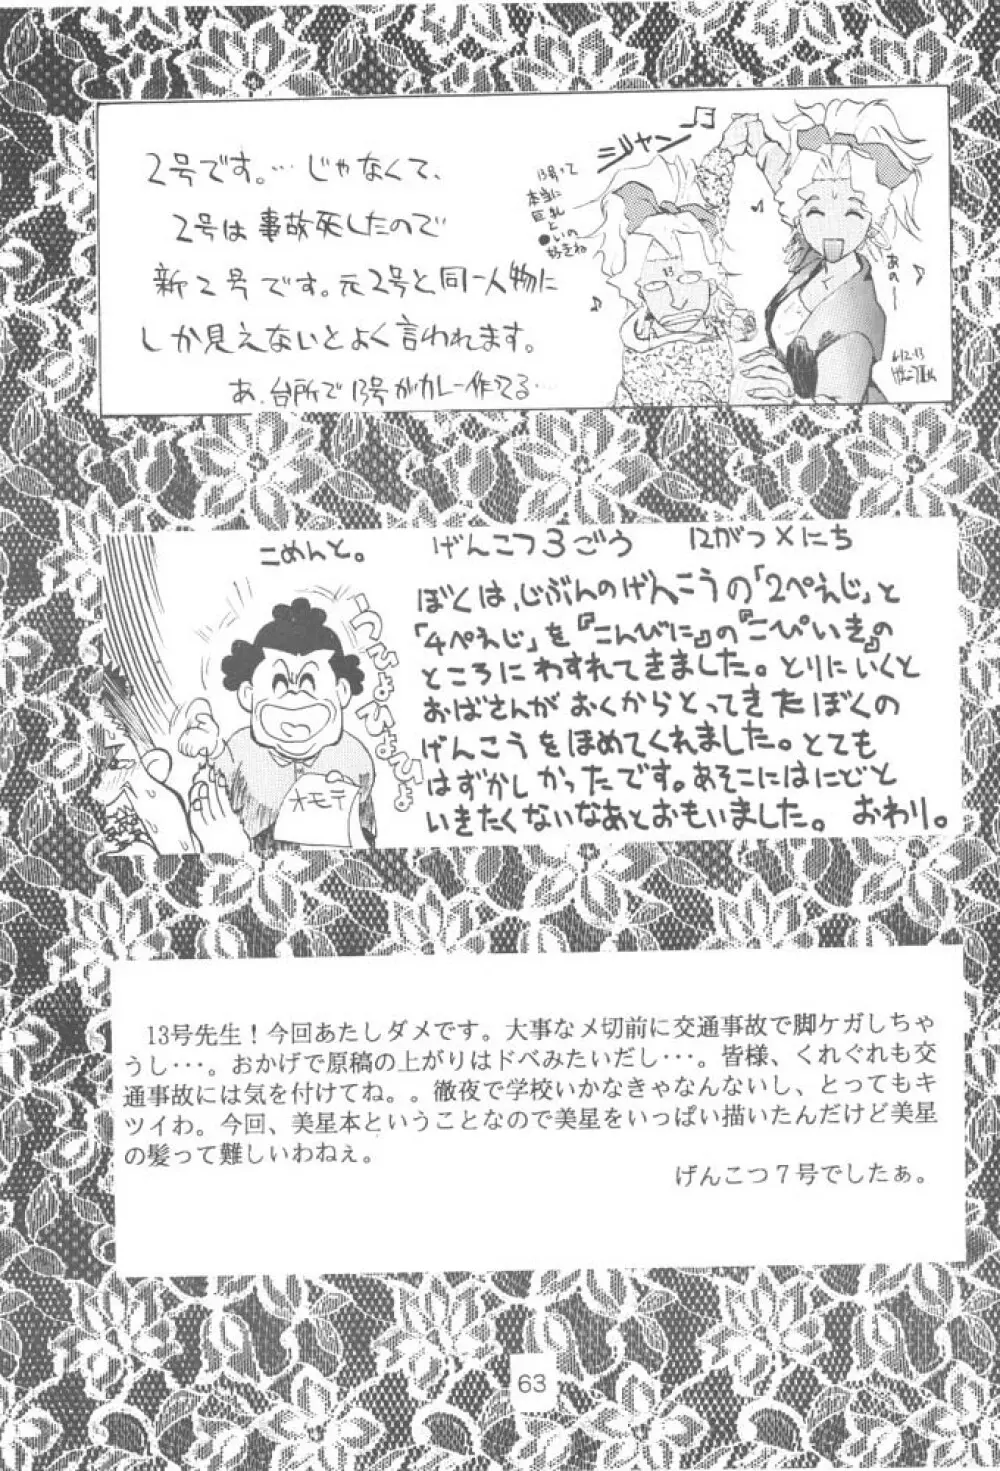 2号です。…じゃなくて、
2号は事故死したので
新2号です。元2号と同一人物に
しか見えないとよく言われます。
あ、台所で13号がカレー作ってる…
ジャン
♪
13号って
本当に
巨乳
と
●いの
好きね
13
あのー
♪
こめんと。 げんこつ3ごう 12がつ×にち
ぼくは、じぶんのげんこうの「2ぺえじ」と
「4ぺえじ」を『こんびに』の『こぴいき』の
ところにわすれてきました。とりにいくと
おばさんがおくからとってきたぼくの
げんこうをほめてくれました。とても
はずかしかったです。あそこにはにどと
いきたくないなあとおもいました。 おわり。
うひょひょひょひょ
オモテ
13号先生！今回あたしダメです。大事なメ切前に交通事故で脚ケガしちゃ
うし･･･。おかげで原稿の上がりはドベみたいだし･･･。皆様、くれぐれも交
通事故には気を付けてね。。徹夜で学校いかなきゃなんないし、とってもキ
ツイわ。今回、美星本ということなので美星をいっぱい描いたんだけど美星
の髪って難しいわねぇ。
げんこつ７号でしたぁ。
63